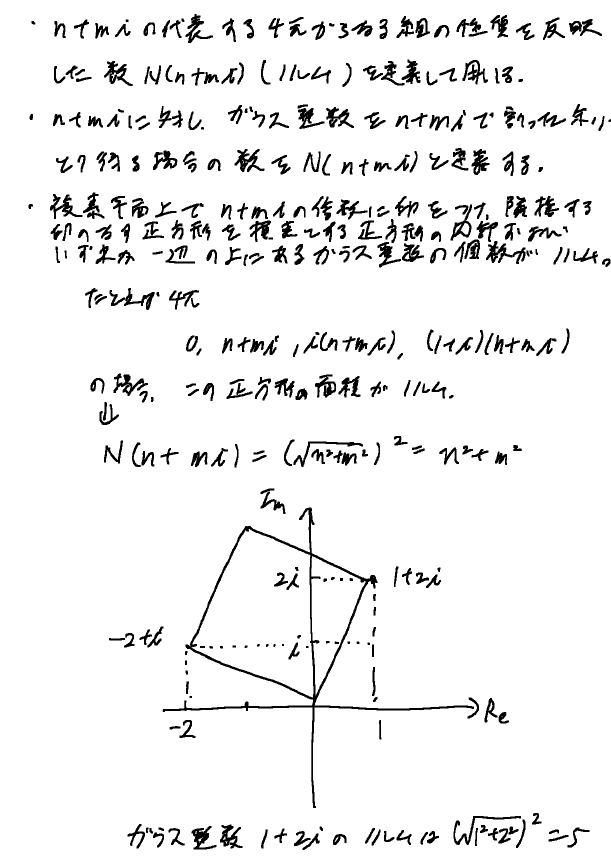 ・n+miの代表する4元からなる組の性質を反映
した数N(n+mi)(ノルム)を定義して用いる。
・n+miに対し、ガウス整数をn+miで割った余り
とり得る場合の数をN(n+mi)と定義する。
・複素平面上でn+miの倍数に印をつけ、隣接する
印のなす正方形を想定とする正方形の内部および
いずれか一辺の上にあるガウス整数の個数がノルム。
たとえば4元
0, n+mi, i(n+mi), (1+i)(n+mi)
の場合、この正方形の面積がノルム。
⇓
N(n+mi) = (√n²+m²)² = n²+m²
Im
2i 1+2i
-2+i i
-2 1 Re
ガウス整数 1+2i のノルムは (√1²+2²)² = 5